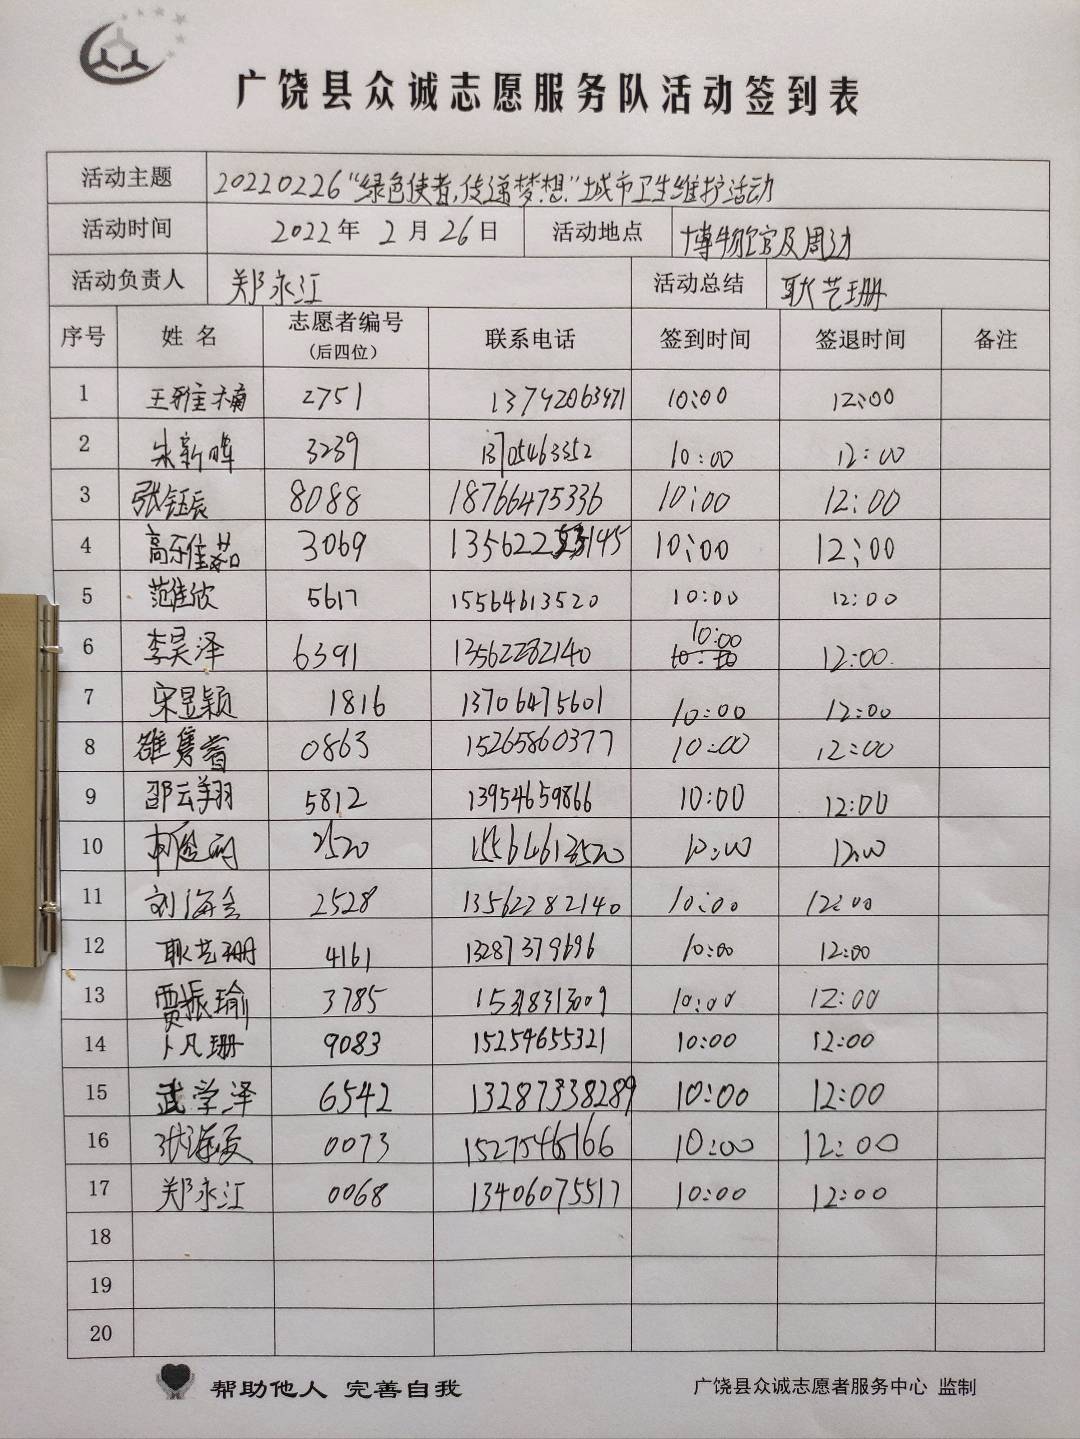 广饶县众诚志愿服务队活动签到表
活动主题 20220226“绿色使者,传递梦想”城市卫生维护活动
活动时间 2022年 2月 26日 活动地点 博物馆及周边
活动负责人 郑永江 活动总结 耿艺珊
序号 姓名 志愿者编号 (后四位) 联系电话 签到时间 签退时间 备注
1 王雅楠 2751 13792063971 10:00 12:00
2 朱新晔 3239 13705463352 10:00 12:00
3 张钰辰 8088 18766475336 10:00 12:00
4 高乐佳茹 3069 10:00 12:00
5 范佳欣 5617 15564613520 10:00 12:00
6 李昊泽 6391 13562282140 10:00 12:00
7 宋昱颖 1816 13706475601 10:00 12:00
8 0863 15265860377 10:00 12:00
9 邵云翔 5812 13954659866 10:00 12:00
10 2520 15564613520 10:00 12:00
11 刘海会 2528 13562282140 10:00 12:00
12 耿艺珊 4161 13287379696 10:00 12:00
13 贾振瑜 3785 15318313009 10:00 12:00
14 卜凡珊 9083 15254655321 10:00 12:00
15 武学泽 6542 13287338289 10:00 12:00
16 0073 10:00 12:00
17 郑永江 0068 13406075517 10:00 12:00
18
19
20
帮助他人 完善自我 广饶县众诚志愿者服务中心 监制